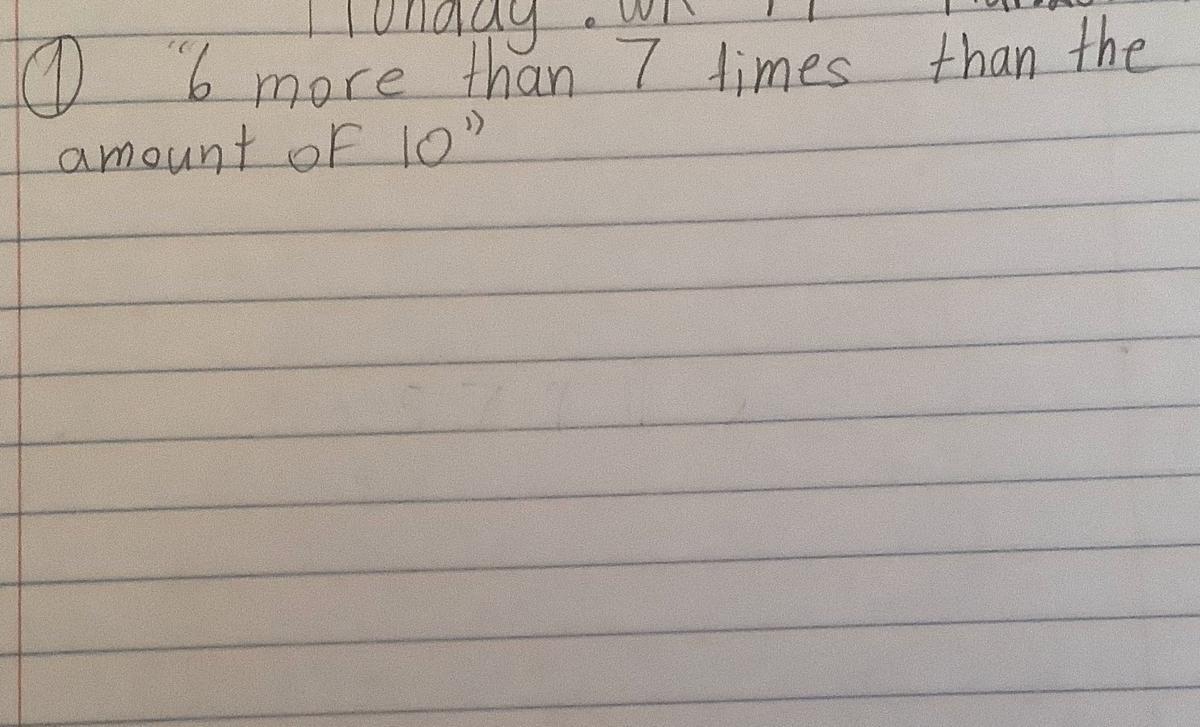 Monday.
① "6 more than 7 times than the
amount of 10"